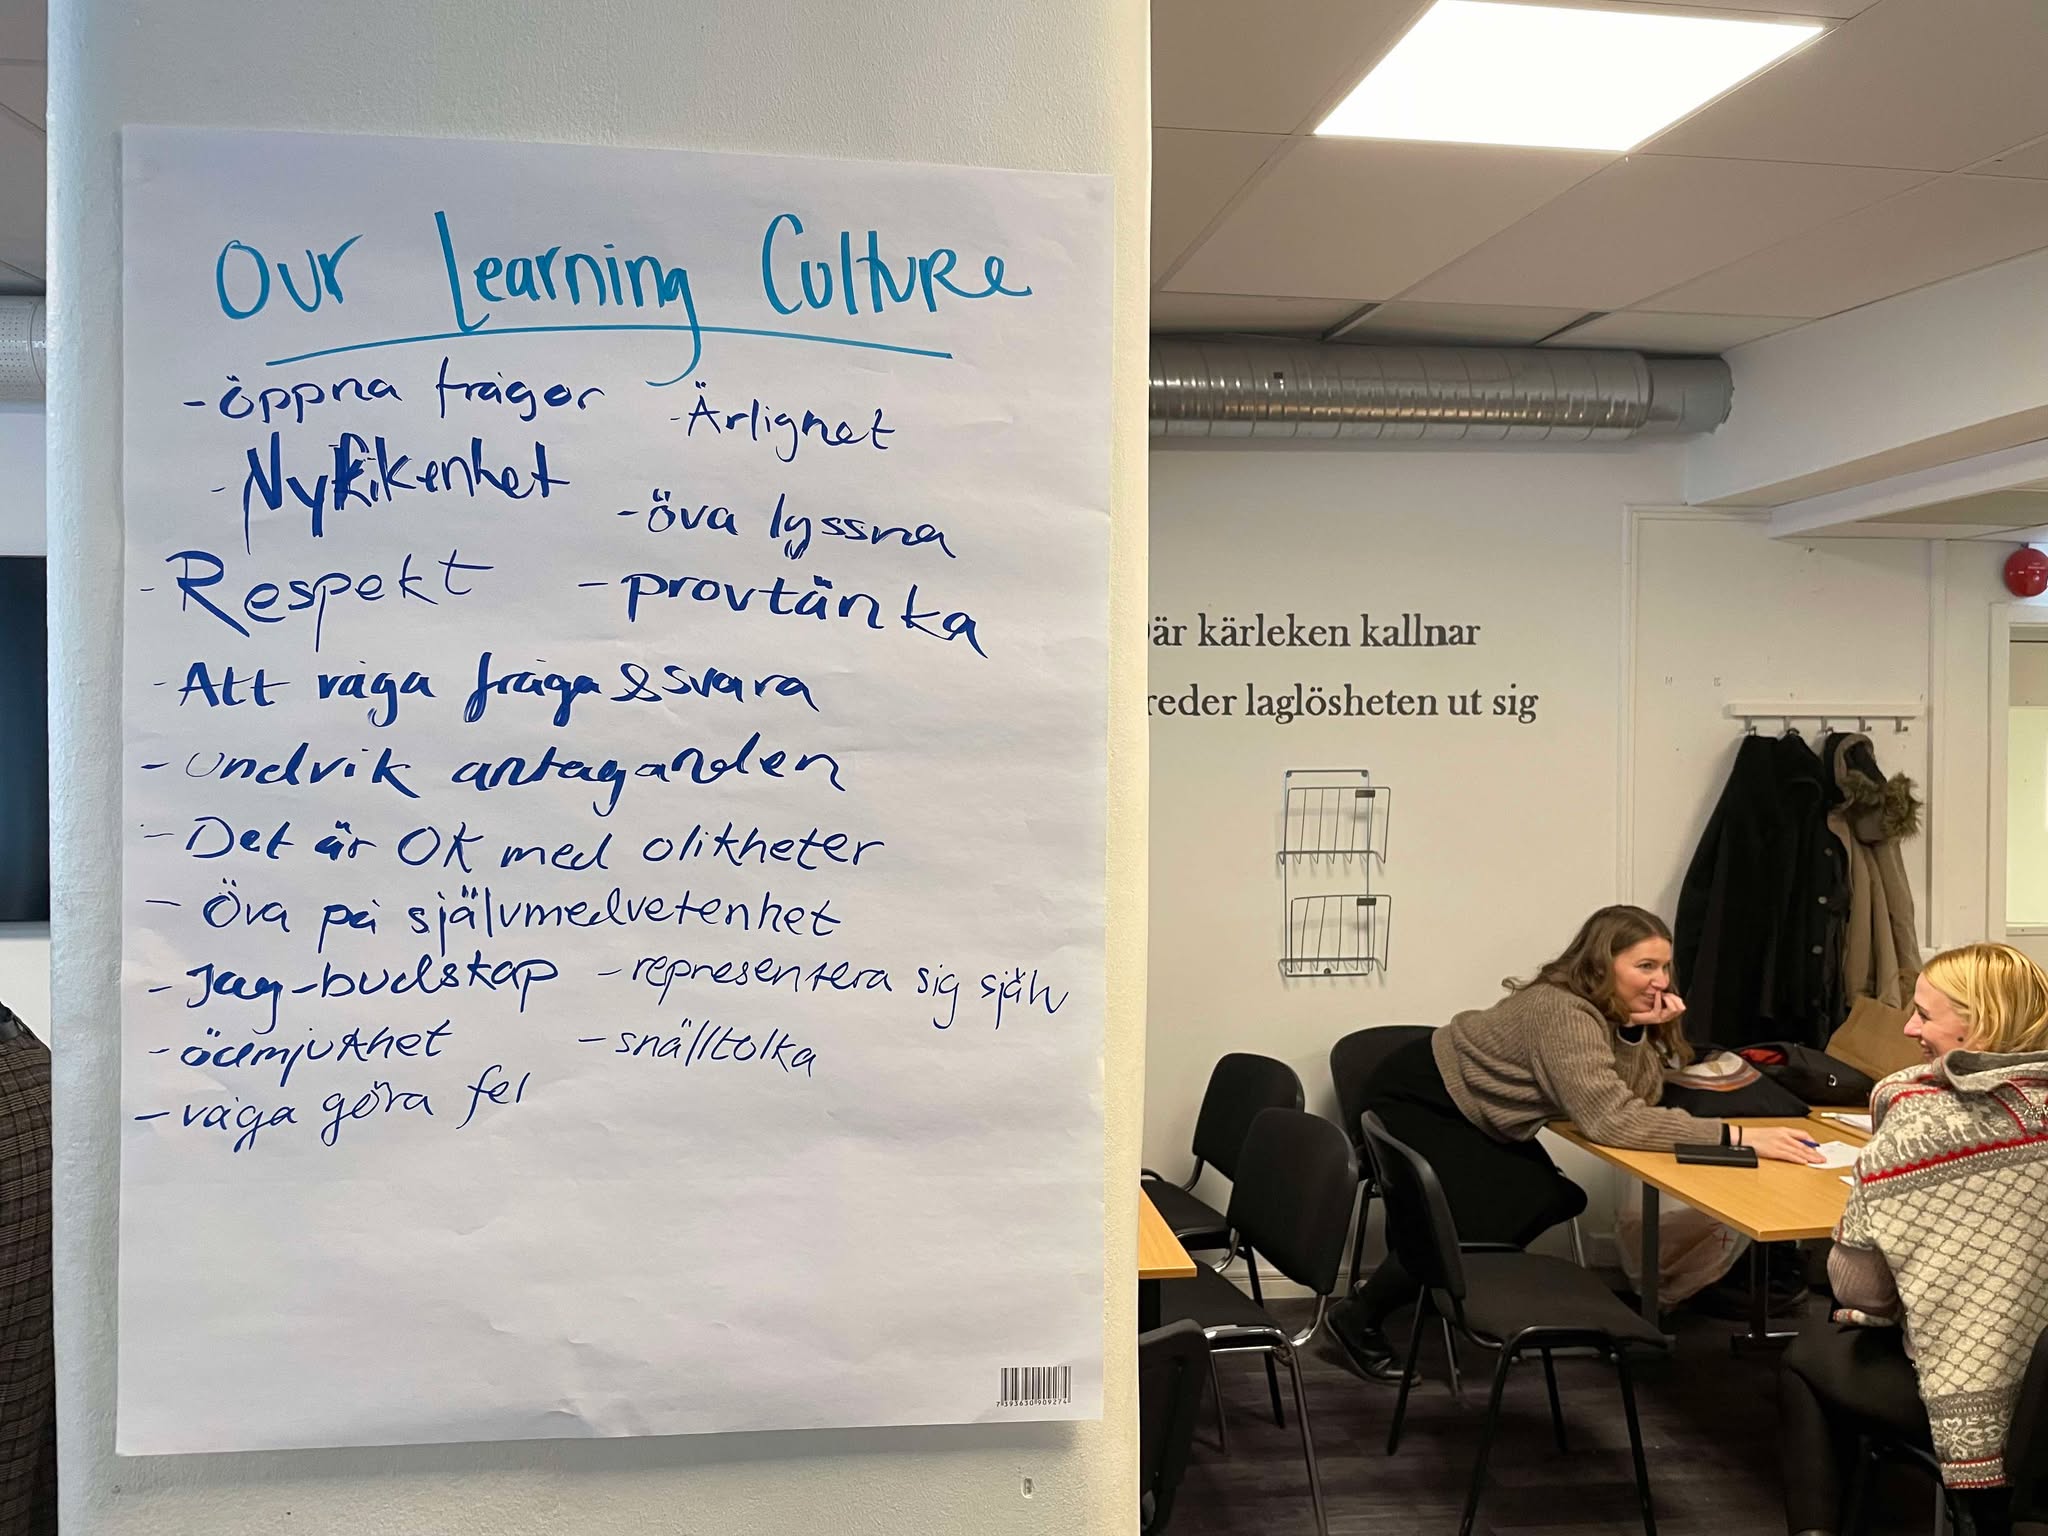 Our Learning Culture
- öppna frågor
- Ärlighet
- Nyfikenhet
- öva lyssna
- Respekt
- provtänka
- Att våga fråga & svara
- undvik antaganden
- Det är OK med olikheter
- Öva på självmedvetenhet
- Jag-budskap
- representera sig själv
- ödmjukhet
- snälltolka
- våga göra fel
7393630909274
är kärleken kallnar
reder laglösheten ut sig